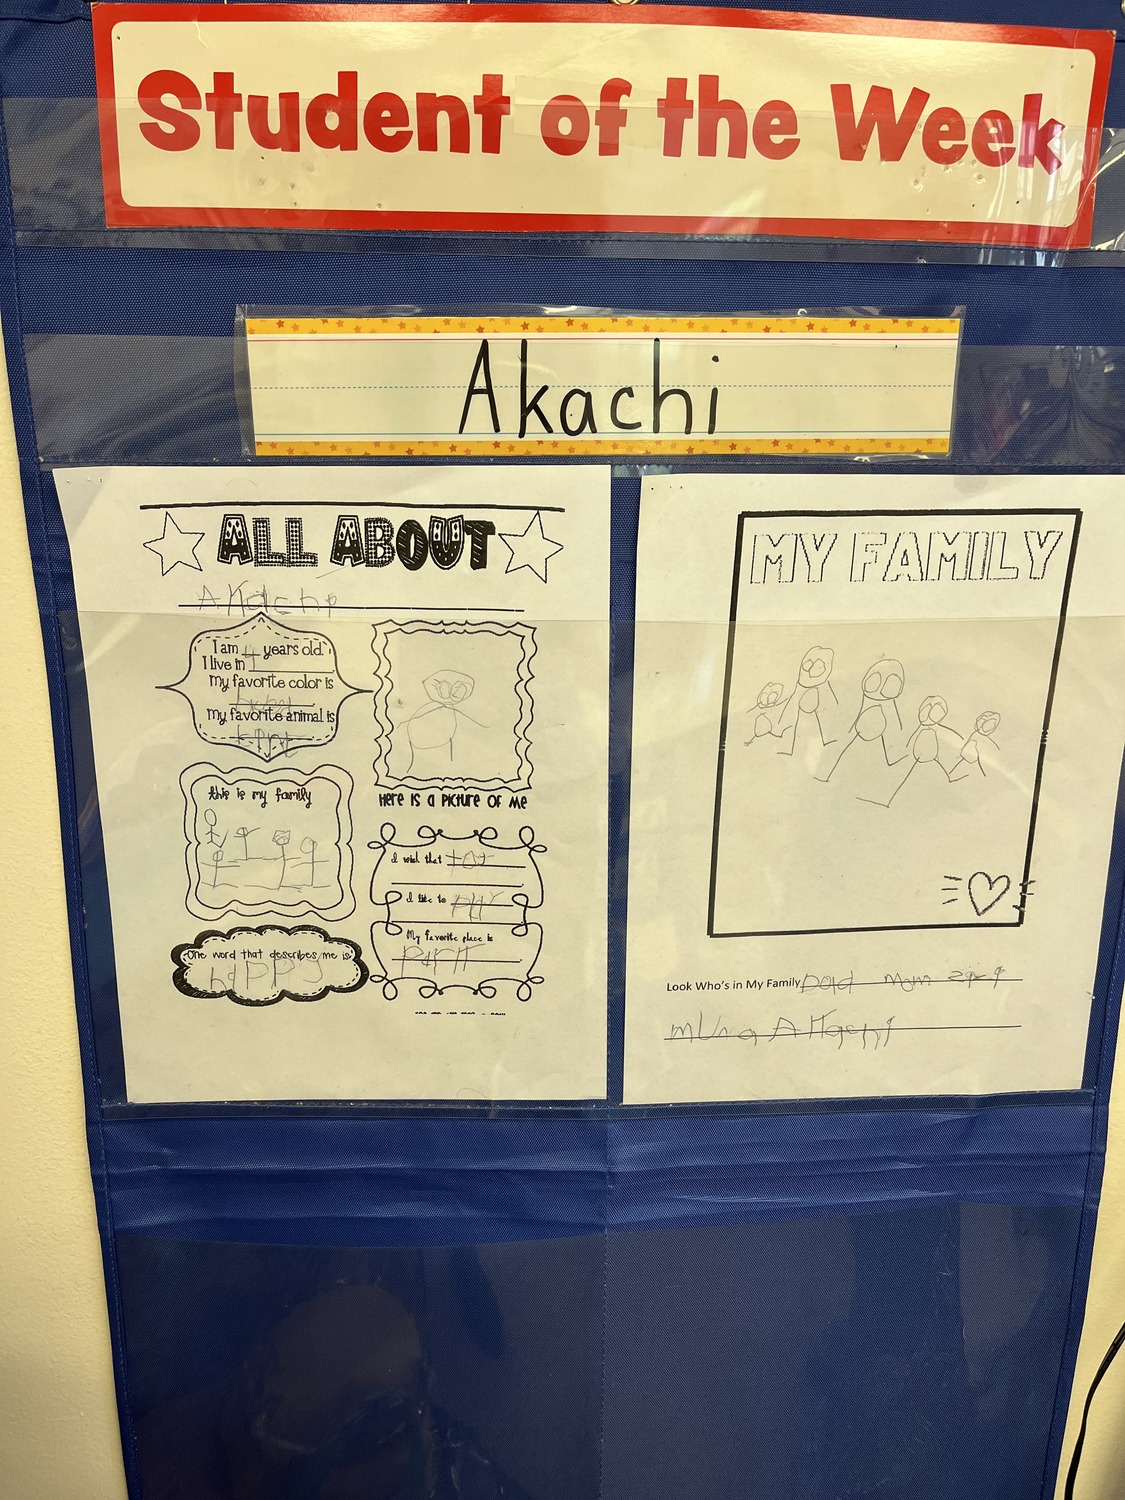 Student of the Week
Akachi
ALL ABOUT
AKachi
I am 4 years old.
I live in
my favorite color is
my favorite animal is
this is my family
Here is a picture of me
I wish that
I like to
My favorite place is
One word that describes me is
happy
MY FAMILY
Look Who's in My Family Dad Mum
AKachi